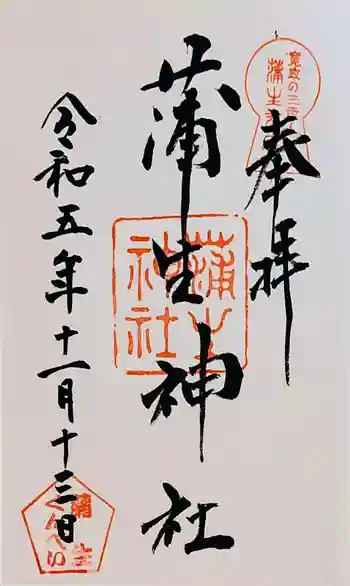 奉拝
寛政の三
蒲生
蒲生神社
蒲生
神社
令和五年十一月十三日
蒲生
くんぺい